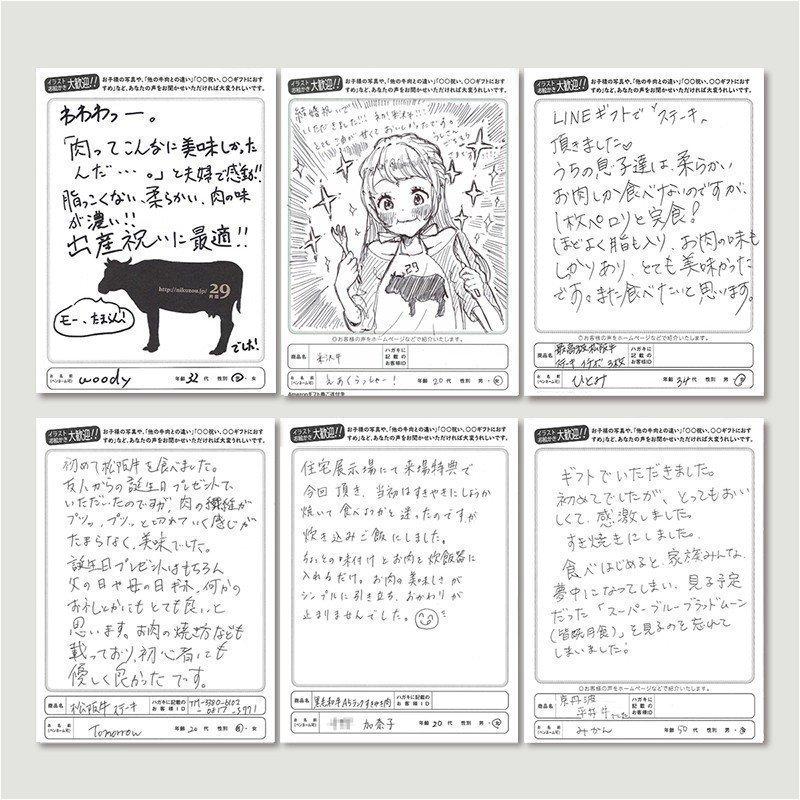 イラスト お絵かき 大歓迎!! お子様の写真や、「他の牛肉との違い」「〇〇祝い、〇〇ギフトにおすすめ」など、あなたの声をお聞かせいただければ大変うれしいです。
わわわっー。
「肉ってこんなに美味しかった
んだ…。」と夫婦で感動!!
脂っこくない、柔らかい、肉の味
が濃い!!
出産祝いに最適!!
http://nikuzou.jp/ 29
モー、たまらん!
お名前 (ペンネーム可) woody 年齢 32代 性別 男・女
イラスト お絵かき 大歓迎!! お子様の写真や、「他の牛肉との違い」「〇〇祝い、〇〇ギフトにおすすめ」など、あなたの声をお聞かせいただければ大変うれしいです。
結婚祝いで
いただきました!!
29
◎お客様の声をホームページなどで紹介いたします。
商品名 米沢牛 ハガキに記載のお客様ID
お名前 (ペンネーム可) 年齢 20代 性別 男・女
Amazonギフト券ご送付先
イラスト お絵かき 大歓迎!! お子様の写真や、「他の牛肉との違い」「〇〇祝い、〇〇ギフトにおすすめ」など、あなたの声をお聞かせいただければ大変うれしいです。
LINEギフトで「ステーキ」
頂きました♡
うちの息子達は、柔らかい
お肉しか食べないのですが、
1枚ペロリと完食!
ほどよく脂も入り、お肉の味も
しかりあり、とても美味かった
です。また食べたいと思います。
◎お客様の声をホームページなどで紹介いたします。
商品名 最高級松阪牛 ステーキ 3枚 ハガキに記載のお客様ID
お名前 (ペンネーム可) ひとみ 年齢 34代 性別 男・女
イラスト お絵かき 大歓迎!! お子様の写真や、「他の牛肉との違い」「〇〇祝い、〇〇ギフトにおすすめ」など、あなたの声をお聞かせいただければ大変うれしいです。
初めて松阪牛を食べました。
友人からの誕生日プレゼントで
いただいたのですが、肉の繊維が
プツッ、プツッと切れていく感じが
たまらなく、美味でした。
誕生日プレゼントはもちろん
父の日や母の日ギフト、何かの
お礼とかにもとても良いと
思います。お肉の焼き方なども
載っており、初心者にも
優しく良かったです。
商品名 松阪牛ステーキ ハガキに記載のお客様ID
お名前 (ペンネーム可) Tomorrow 年齢 20代 性別 男・女
イラスト お絵かき 大歓迎!! お子様の写真や、「他の牛肉との違い」「〇〇祝い、〇〇ギフトにおすすめ」など、あなたの声をお聞かせいただければ大変うれしいです。
住宅展示場にて来場特典で
今回頂き、当初はすきやきにしようか
焼いて食べようかと迷ったのですが
炊き込みご飯にしました。
ちょっとの味付けとお肉を炊飯器に
入れるだけ。お肉の美味しさが
シンプルに引き立ち、おかわりが
止まりませんでした。
商品名 黒毛和牛A5ランクすきやき肉 ハガキに記載のお客様ID
お名前 (ペンネーム可) 加奈子 年齢 30代 性別 男・女
イラスト お絵かき 大歓迎!! お子様の写真や、「他の牛肉との違い」「〇〇祝い、〇〇ギフトにおすすめ」など、あなたの声をお聞かせいただければ大変うれしいです。
ギフトでいただきました。
初めてでしたが、とってもおい
しくて、感激しました。
すき焼きにしました。
食べはじめると、家族みんな、
夢中になってしまい、見る予定
だった「スーパーブルーブラッドムーン
(皆既月食)」を見るのを忘れて
しまいました!
◎お客様の声をホームページなどで紹介いたします。
商品名 京丹波平井牛 ハガキに記載のお客様ID
お名前 (ペンネーム可) みかん 年齢 50代 性別 男・女